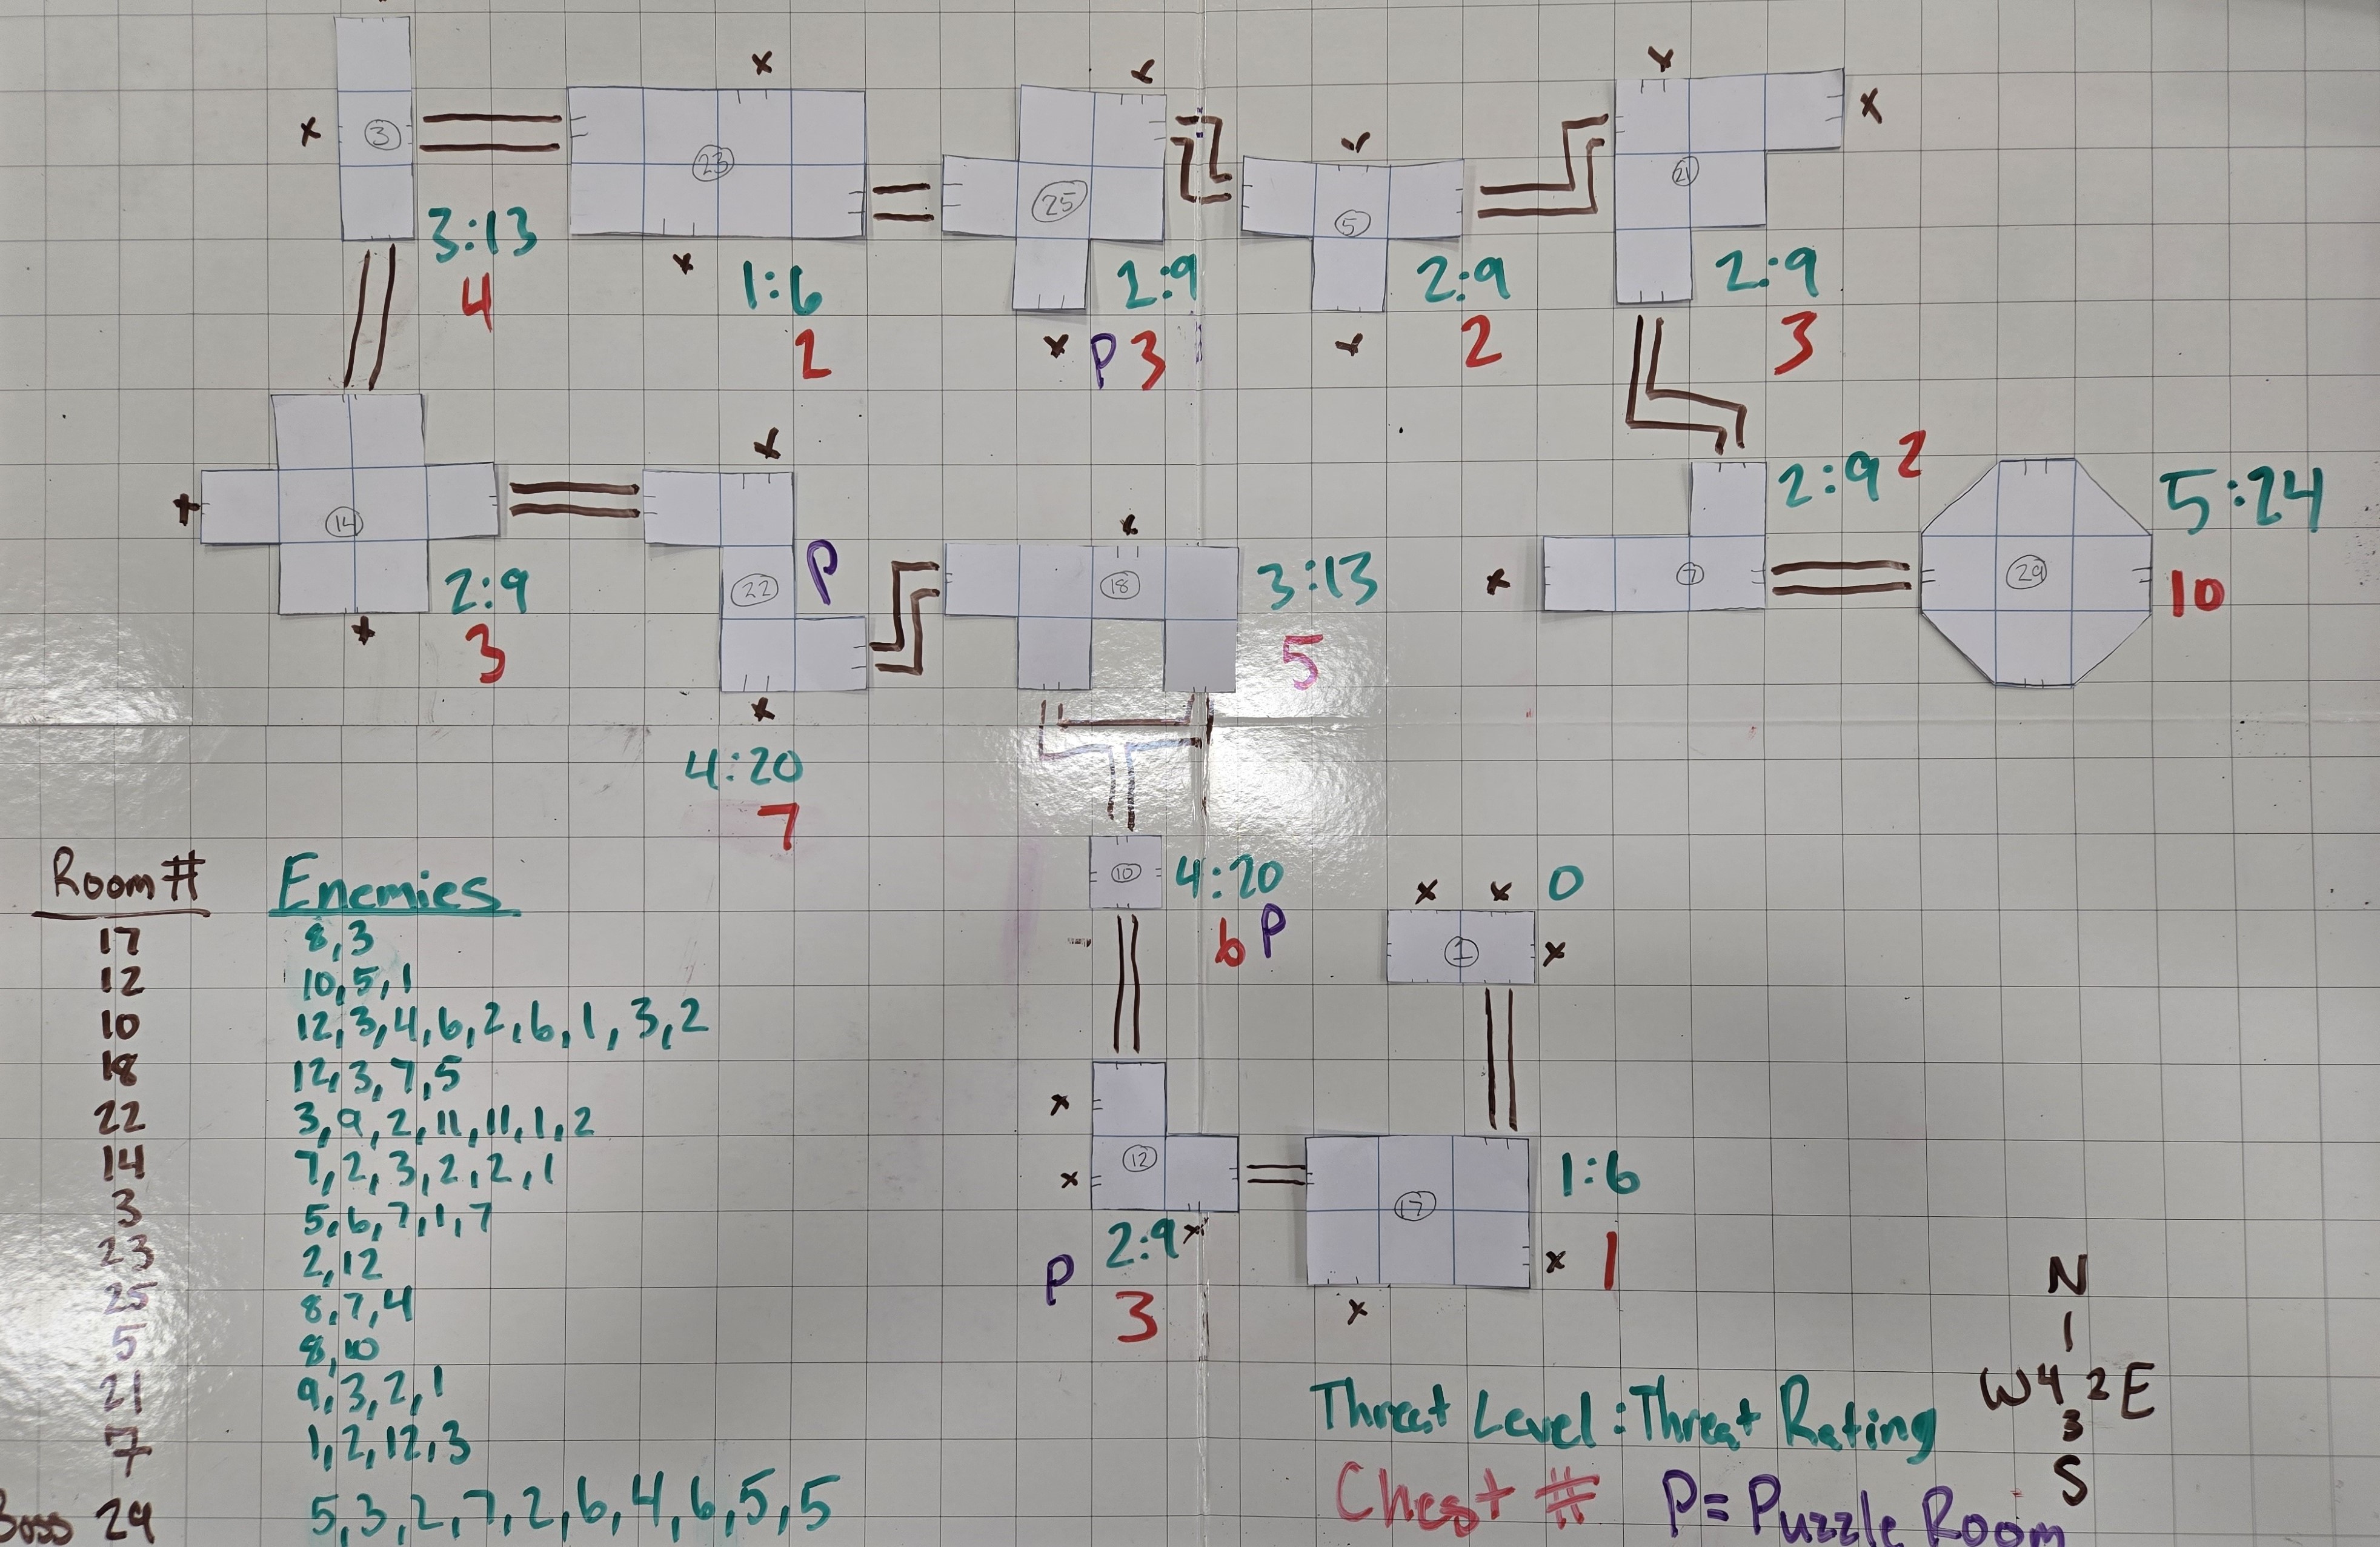 x
x
x
x
x
3
23
25
5
21
x
3:13
4
x
1:6
2
2:9
x P 3
x
2:9
2
2:9
3
x
x
14
3:13
x
2:9
3
22
P
x
4:20
7
18
5
x
7
2:9 2
29
5:24
10
10
4:20
6 P
x x 0
1
x
x
x
12
2:9 x
P
3
17
1:6
x 1
x
Room # Enemies
17 8,3
12 10,5,1
10 12,3,4,6,2,6,1,3,2
18 12,3,7,5
22 3,9,2,11,11,1,2
14 7,2,3,2,2,1
3 5,6,7,1,7
23 2,12
25 8,7,4
5 8,10
21 9,3,2,1
7 1,2,12,3
Boss 29 5,3,2,7,2,6,4,6,5,5
N
1
W 4 2 E
3
S
Threat Level:Threat Rating
Chest # P=Puzzle Room